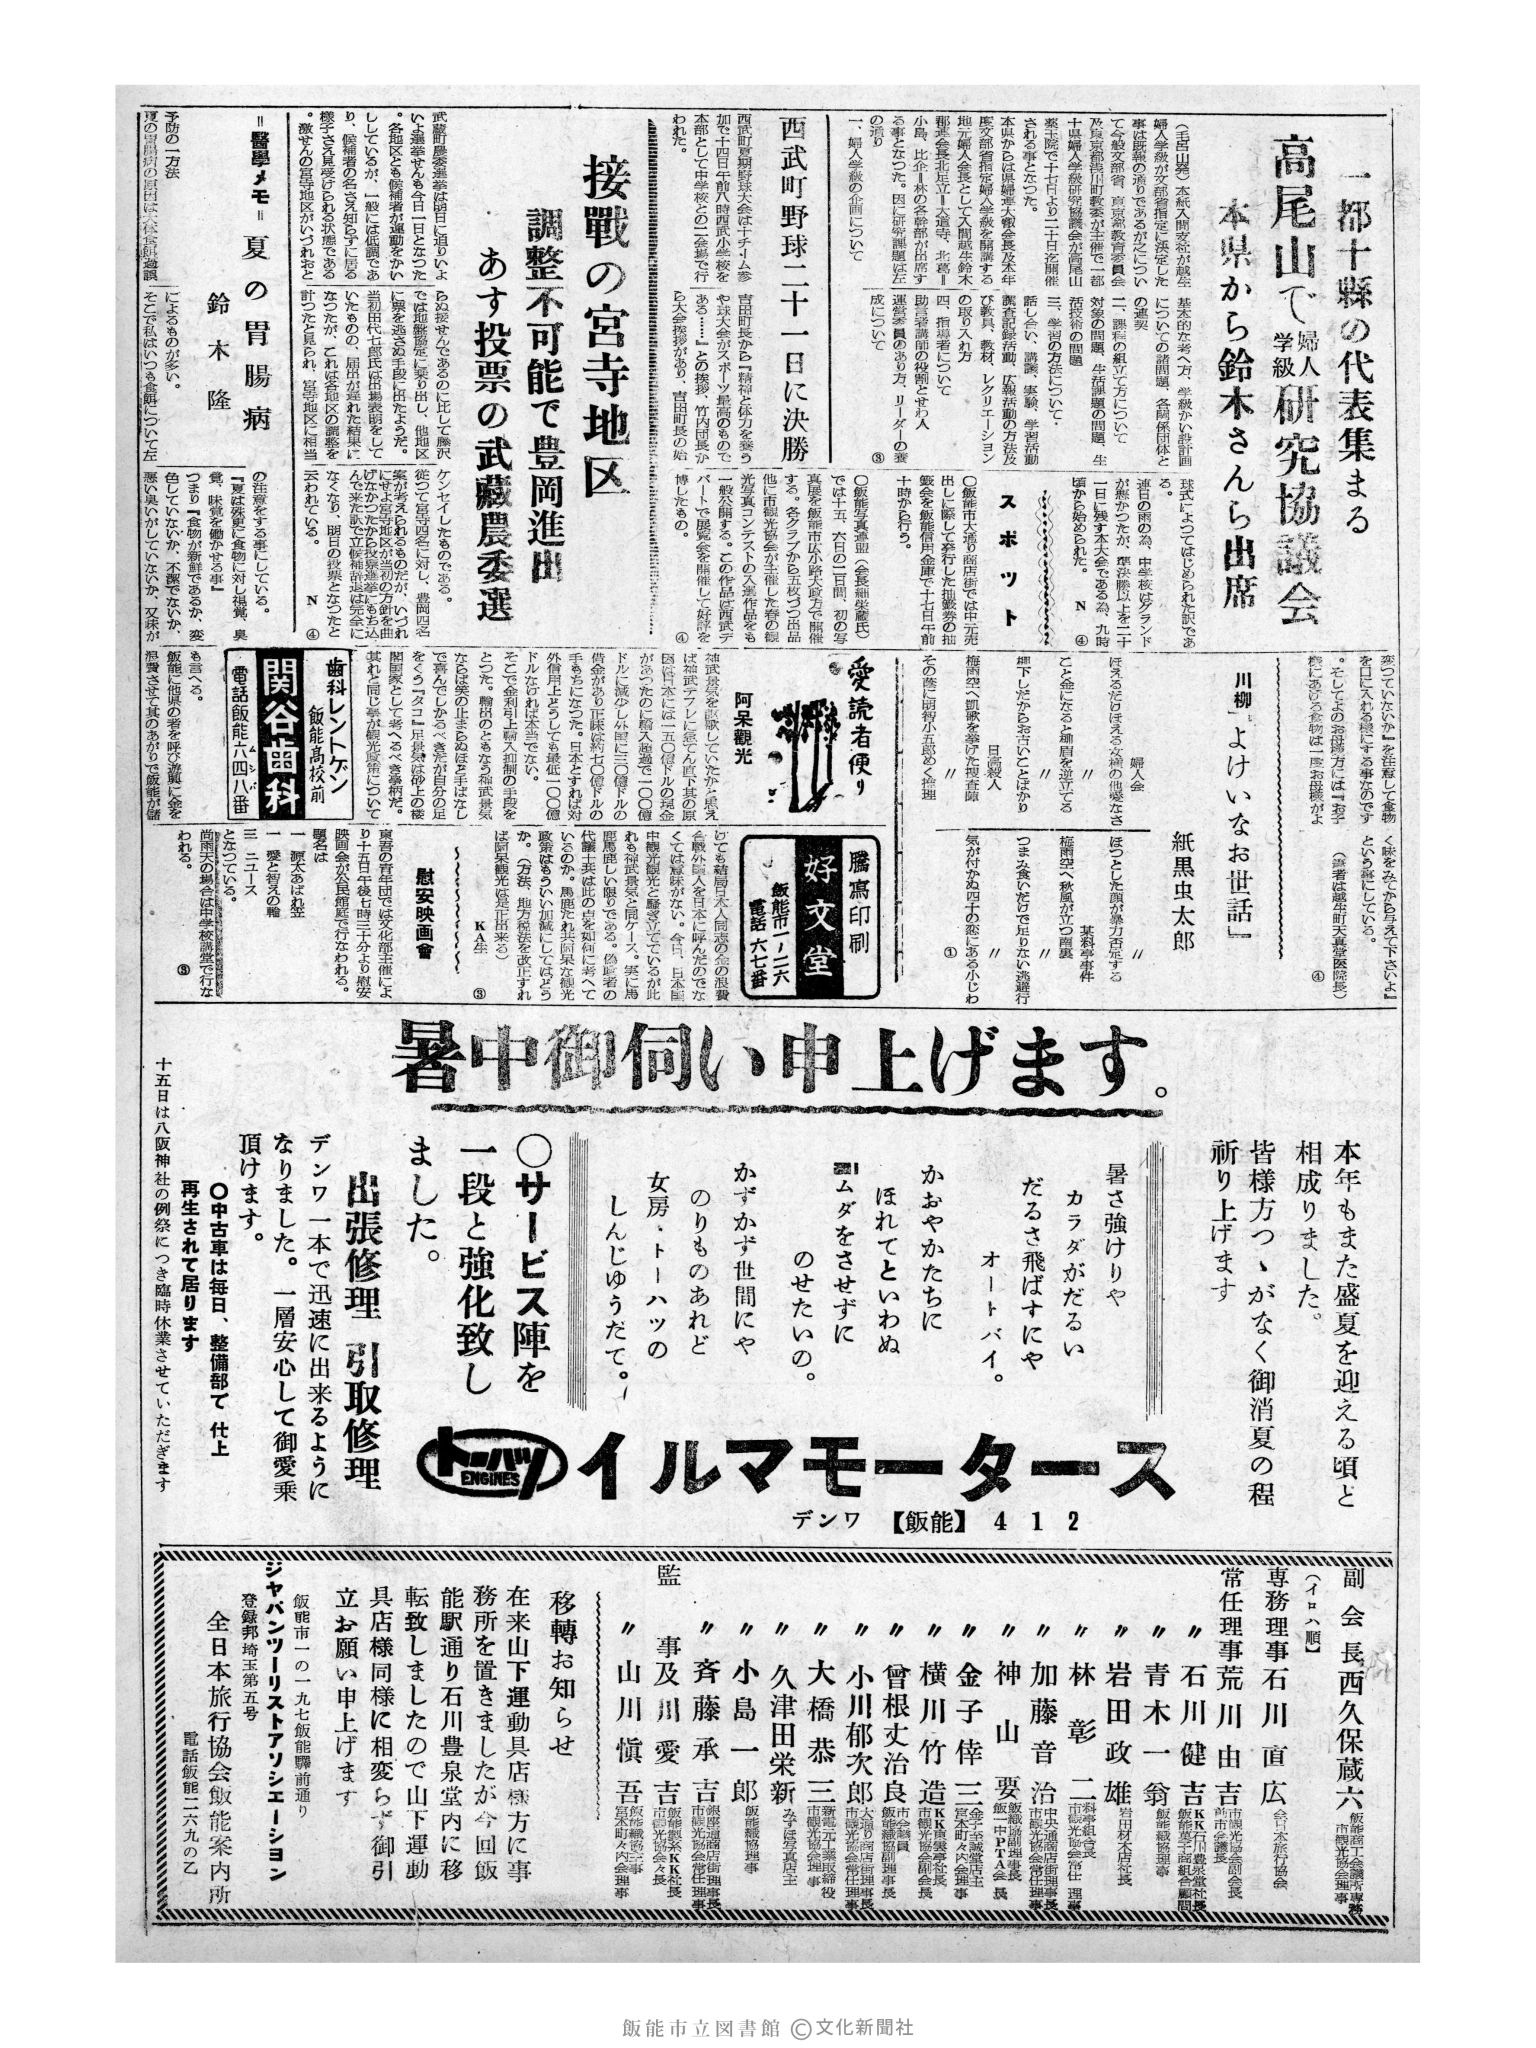 一都十縣の代表集まる
高尾山で婦人学級研究協議会
本県から鈴木さんら出席
(毛呂山発)本紙入間支総が越生
婦人学級が文部省指定に決定した
事は既報の通りであるが之につい
て今般文部省、東京都教育委員会
及東京都浅川町教委が主催で一都
十県婦人学級研究協議会が高尾山
薬王院で十七日より二十日迄開催
される事となつた。
本県からは県婦連大衡会長及本年
度文部省指定婦人学級を開講する
地元婦人会長として入間越生鈴木
郡連会長北足立=大道寺、北葛=
小島、比企=林の各幹部が出席す
る事となつた。因に研究課題は左
の通り
一、婦人学級の企画について
基本的な考へ方、学級かい設計画
についての諸問題、各関係団体と
の連契
二、課程の組立て方について
対象の問題、生活課題の問題、生
活技術の問題
三、学習の方法について・
話し合い、講議、実験、学習活動
調査記録活動、広報活動の方法及
び教具、教材、レクリエーション
の取り入れ方
四、指導者について
助言者講師の役割とせわ人
運営委員のあり方、リーダーの養
成について ③
西武町野球二十一日に決勝
西武町夏期野球大会は十チーム参
加で十四日午前八時西武小学校を
本部として中学校との二会場で行
われた。
吉田町長から『精神と体力を養う
や球大会がスポーツ最高のもので
ある……』との挨拶、竹内団長か
ら大会挨拶があり、吉田町長の始
球式によつてはじめられた訳であ
る。
連日の雨の為、中学校はグランド
が悪かつたが、準決勝以上を二十
一日に残す本大会である為、九時
頃から始められた。 N ④
スポット
○飯能市大通り商店街では中元売
出しに際して発行した抽籤券の抽
籤会を飯能信用金庫で十七日午前
十時から行う。
○飯能写真連盟(会長細栄蔵氏)
では十五、六日の二日間、初の写
真展を飯能市広小路大政方で開催
する。各クラブから五枚づつ出品
他に市観光協会が主催した春の観
光写真コンテストの入選作品をも
一般公開する。この作品は西武デ
パートで展覧会を開催して好評を
博したもの。 ④
接戰の宮寺地区
調整不可能で豊岡進出
あす投票の武藏農委選
武蔵町農委選挙は明日に追りいよ
いよ選挙せんも今日一日となつた
。各地区とも候補者が運動をかい
ししているが、一般には低調であ
り、候補者の名さえ知らずに居る
様子さえ見受けられる状態である
。激せんの宮寺地区がいづれおと
らぬ接せんであるのに比して藤沢
では地盤協定に乗り出し、他地区
に票を逃さぬ手段に出たようだ。
当初田代七郎氏は出場表明をして
いたものの、届出が遅れた結果に
なつたが、これは各地区の調整を
計つたと見られ、宮寺地区に相当
ケンセイしたものである。
従つて宮寺四名に対し、豊岡四名
案が考えられるものだが、いづれ
にせよ宮寺地区が当初の方針を曲
げなかつたから投票選挙にもち込
んで来た訳で立候補辞退は完全に
なくなり、明日の投票となつたと
云われている。 N ④
=醫學メモ=
夏の胃腸病
鈴木隆
予防の一方法
夏の胃腸病の原因は大体食餌過誤
によるものが多い。
そこで私はいつも食餌について左
の注意をする事にしている。
『夏は殊更に食物に対し視覚、臭
覚、味覚を働かせる事』
つまり『食物が新鮮であるか、変
色していないか、不潔でないか、
悪い臭いがしていないか、又味が
変つていないか』を注意して食物
を口に入れる様にする事なのです
。そしてよのお母様方には『お子
様にあげる食物は一度お母様がよ
く味をみてから与えて下さいよ』
という事にしている。
(筆者は越生町天真堂医院長) ④
川柳「よけいなお世話」
紙黒虫太郎
婦人会
ほえるだけほえる女権の他愛なさ
こと金になると柳眉を逆立てる
〃
柳下しだからお古いことばかり
〃
日高殺人
梅雨空へ凱歌を挙げた捜査陣
その蔭に明智小五郎めく推理
〃
ほつとした顔が暴力否定する
〃
某料亭事件
梅雨空へ秋風が立つ南裏
つまみ食いだけで足りない逃避行
〃
気が付かぬ四十の恋にある小じわ
〃 ①
愛読者便り
阿呆觀光
神武景気を謳歌していたかと思え
ば神武デフレに慌てん直下其の原
因は日本には一五〇億ドルの現金
があつたのに輸入超過で一〇〇億
ドルに減少し外国に三〇億ドルの
借金があり正味は約七〇億ドルの
手もちになつた。日本とすれば対
外信用上どうしても最低一〇〇億
ドルなければ本当でない。
そこで金利引上輸入抑制の手段を
とつた。輸出のともなう神武景気
ならば笑の止まらぬほど手ばなし
で喜んでしかるべきだが自分の足
をくう『タコ』足景気は砂上の楼
閣国家として考へるべき事柄だ。
其れと同じ事が観光政策について
も言へる。
飯能に他県の若を呼び遊興に金を
浪費させて其のあがりで飯能が儲
けても結局日本人同志の金の浪費
合戦外国人を日本に呼んだのでな
くては意味がない。今日、日本国
中観光観光と騒ぎ立てているが此
れも神武景気と同ケース。実に馬
鹿馬鹿しい限りである。偽政者の
代議士共は此の点を如何に考へて
いるのか。馬鹿たれ共阿呆な観光
政策はもういい加減にしてはどう
か。(方法、地方税法を改正すれ
ば阿呆観光は是正出来る)
KA生 ③
歯科レントゲン
飯能高校前
関谷歯科
電話飯能六四八番
ムシバ
謄寫印刷
好文堂
飯能市一ノ二六
電話 六七番
慰安映画會
東吾の青年団では文化部主催によ
り十五日午後七時三十分より慰安
映画会が公民館庭で行なわれる。
題名は
一 源太あばれ笠
一 愛と智えの輪
三 ニュース
となつている。
尚雨天の場合は中学校講堂で行な
われる。 ③
暑中御伺い申上げます。
本年もまた盛夏を迎える頃と
相成りました。
皆様方つゝがなく御消夏の程
祈り上げます
暑さ強けりや
カラダがだるい
だるさ飛ばすにや
オートバイ。
かおやかたちに
ほれてといわぬ
ムダをさせずに
のせたいの。
かずかず世間にや
のりものあれど
女房・トーハツの
しんじゆうだて。
○サービス陣を
一段と強化致し
ました。
出張修理 引取修理
デンワ一本で迅速に出来るように
なりました。一層安心して御愛乗
頂けます。
○中古車は毎日、整備部で仕上
再生されて居ります
十五日は八阪神社の例祭につき臨時休業させていただぎます
トーハツ
ENGINES
イルマモータース
デンワ 【飯能】 412
副会長 西久保蔵六 飯能商工会議所専務 市観光協会理事
(イロハ順)
専務理事 石川直広 全日本旅行協会
常任理事 荒川由吉 市観光協会副会長 前市会議長
〃 石川健吉 KK石川豊泉堂社長 飯能菓子商組合顧問
〃 青木一翁 飯能織協理事
〃 岩田政雄 岩田材木店社長
〃 林彰二 料亭組合長 市観光協会常任理事
〃 加藤音治 中央通商店街理事長 市観光協会常任理事
〃 神山要 飯織協副理事長 飯一中PTA会長
〃 金子倖三 金子至誠堂店主 宮本町々内会理事
〃 横川竹造 KK東製亭社長 市観光協会理事
〃 曾根丈治良 市会議員 飯能織協副理事長
〃 小川郁次郎 大通り商店街理事長 市観光協会常任理事
〃 大橋恭三 新電元工業取締役 市観光協会理事
〃 久津田栄新 みずほ写真店主
〃 小島一郎 飯能織協理事
〃 斉藤承吉 銀座通商店街理事長 市観光協会常任理事
監事 及川愛吉 飯能製糸KK社長 市観光協会々長
〃 山川愼吾 飯能織協三事 宮本町々内会理事
移轉お知らせ
在来山下運動具店様方に事
務所を置きましたが今回飯
能駅通り石川豊泉堂内に移
転致しましたので山下運動
具店様同様に相変らず御引
立お願い申上げます
飯能市一の一九七飯能驛前通り
ジャパンツーリストアソシエーション
登録邦埼玉第五号
全日本旅行協会飯能案内所
電話飯能二六九の乙
飯能市立図書館 ©文化新聞社